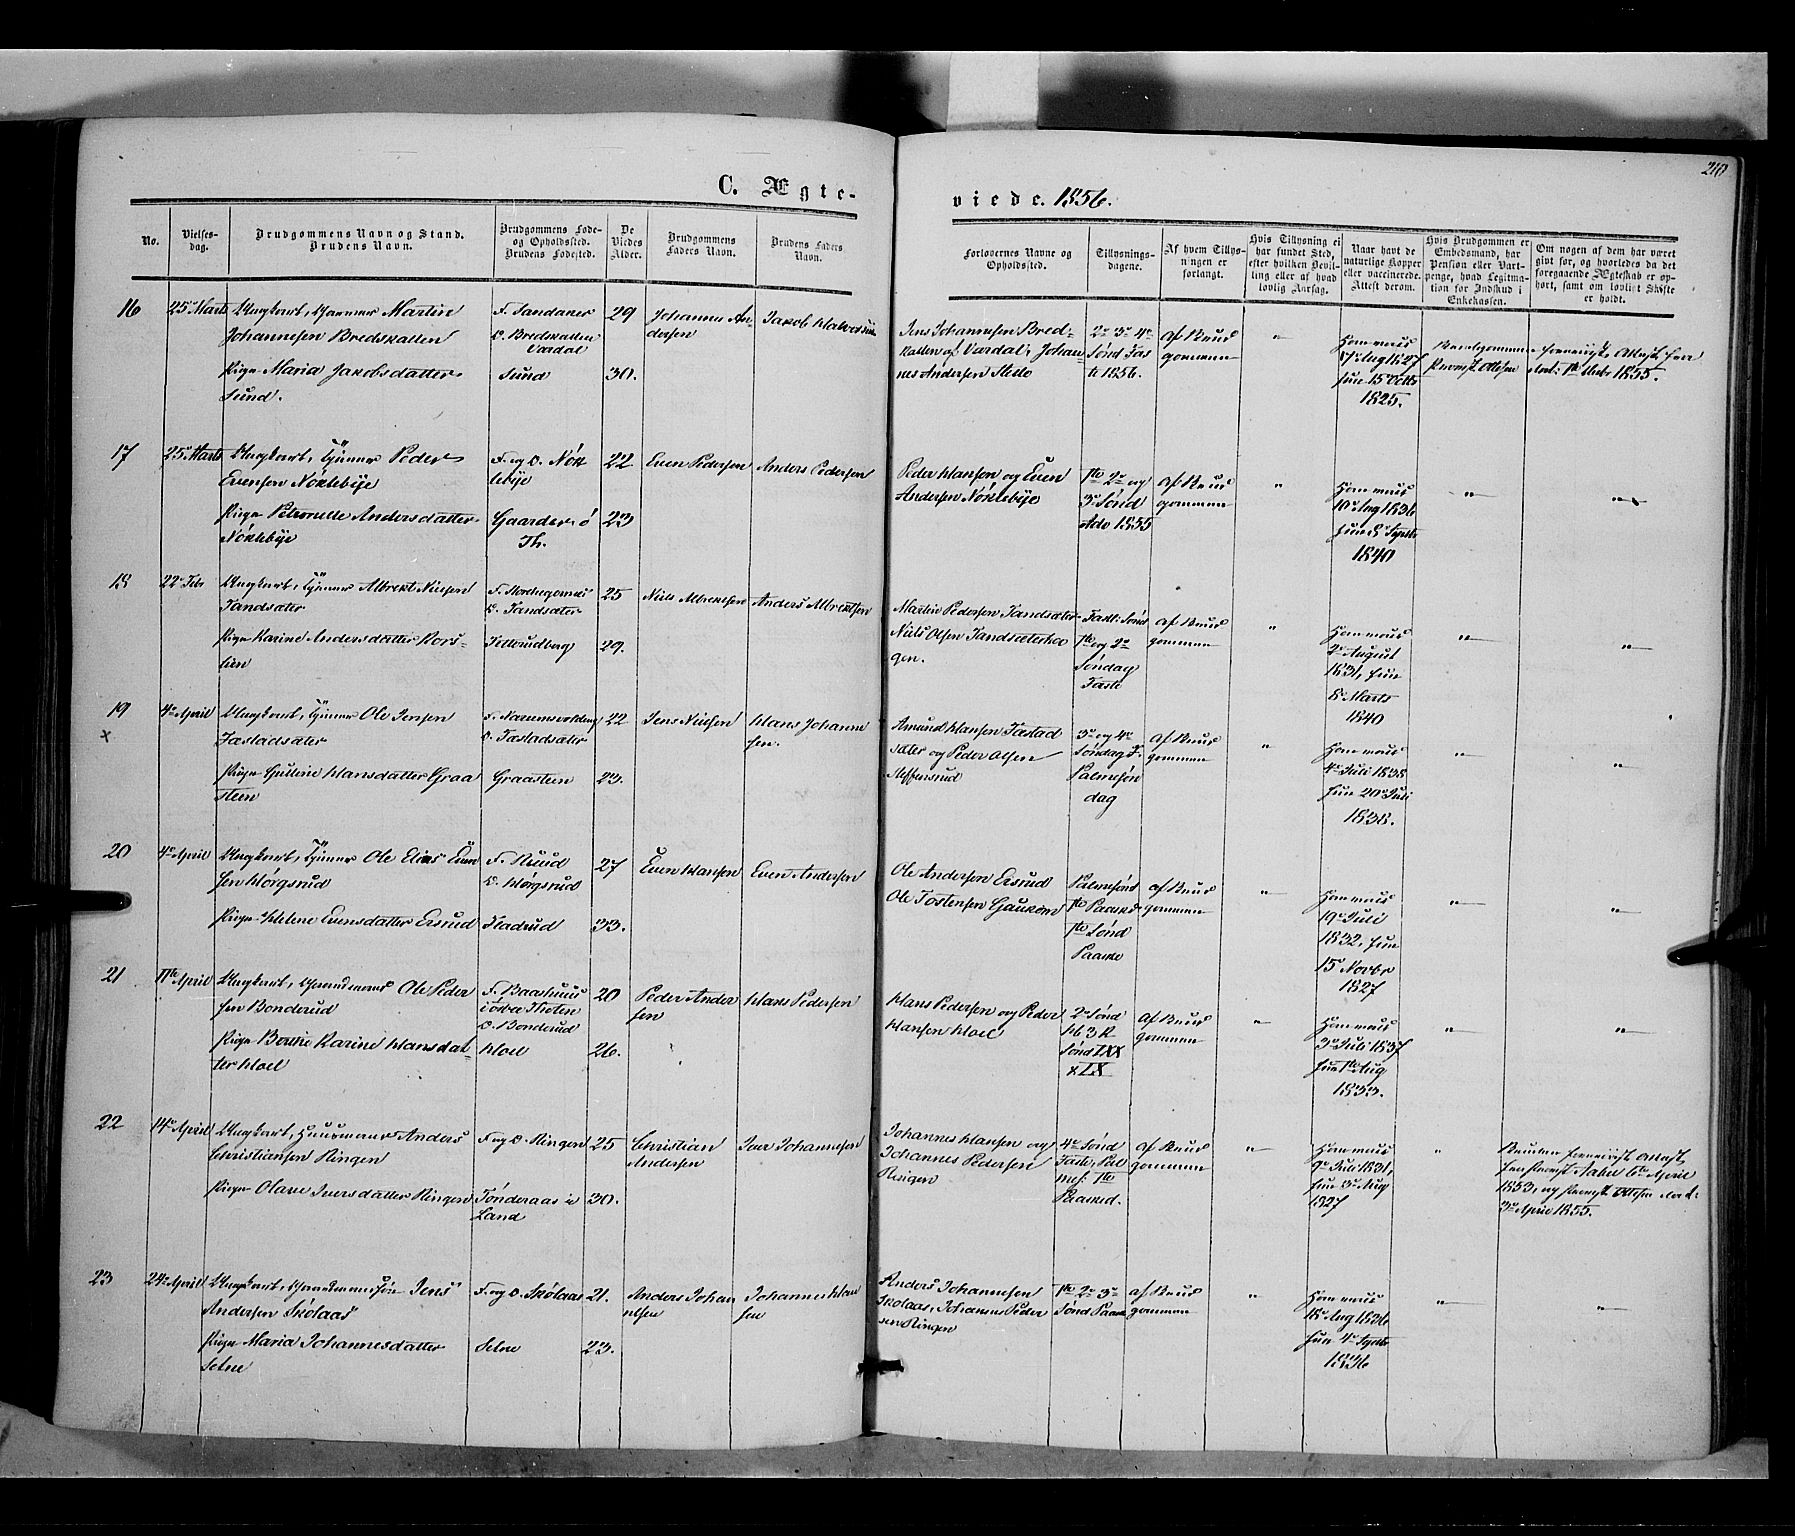 210
C. Ægte-
viede. 1856.
No.
Vielses-
dag.
Brudgommens Navn og Stand.
Brudens Navn.
Brudgommens Føde-
og Opholdssted.
Brudens Fødested.
De
Viedes
Alder.
Brudgommens
Faders Navn.
Brudens Faders
Navn.
Forlovernes Navne og
Opholdssted.
Tillysnings-
dagene.
Af hvem Tillys-
ningen er
forlangt.
Hvis Tillysning ei
har fundet Sted,
efter hvilken Bevil-
ling eller af hvad
lovlig Aarsag.
Naar havt de
naturlige Kopper
eller vaccinerede.
Attest derom.
Hvis Brudgommen er
Embedsmand, har
Pension eller Vart-
penge, hvad Legitima-
tion for Indskud i
Enkekassen.
Om nogen af dem har været
givt før, og hvorledes da det
foregaaende Ægteskab er op-
hørt, samt om lovligt Skifte
er holdt.
16
25 Marts
Ungkarl, Martin
Johannesen Bredskallen
Pige Maria Jakobsdatter
Sund.
F. Sandaker
O. Bredskallen
Vardal
Sund
29
30.
Johannes An-
dersen
Jakob Halvorsen
Jens Johannesen Bred-
kallen af Vardal, Johan
nes Andersen
2n 3n 4n
Sønd Fas
te 1856.
af Brud
gommen
"
Aug 1827
15 Octb
1825.
Attest
1855.
17
25 Marts
Ungkarl, Peder
Evensen Nøklebye
Pige Petronelle Andersdatter
Nøklebye
F. og O. Nøk
lebye
Gaarder ö
Th.
22
23
Even Pedersen
Anders Pedersen
Peder Hansen og Even
Andersen Nøklebye
1te 2n og
3n Sønd
Adv 1855
af Brud
gommen
"
10 Aug 1836
1840
"
"
18
22 Febr
Ungkarl, Albrekt Nielsen
Sandsæter
Pige Karine Andersdatter Kors-
lien
O. Sandsæter
25
29.
Niels Albrektsen
Anders Albrektsen
Martin Pedersen Sandsæter
Niels Olsen Sandsæterha
gen.
Fastl: Sønd
1te og 2n
Søndag
Faste
af Brud
gommen
"
2n August
1831, hun
8n Marts
1840
"
"
19
x
4n April
Ungkarl, Ole Jensen
Fastadsæter
Pige Guline Hansdatter Graa
steen
O. Fastadsæter
Graasteen
22
23.
Jens Nielsen
Hans Johanne
sen.
Amund Hansen Fastad
sæter og Peder Olsen
Steffensrud
3n og 4n
Søndag F.
Palmesøn
dag
af Brud
gommen
"
4n Juli 1838
hun 20 Juli
1838.
"
"
20
4n April
Ungkarl, Ole Elias Even
sen Hørgsrud
Pige Helene Evensdatter Ersrud
F. Ruud
O. Hørgsrud
27
33.
Even Hansen
Even Andersen
Ole Andersen Ersrud
Ole Tostensen Gaukom
Palmesønd
1te Paaskd
1te Sønd
Paaske
af Brud
gommen
"
19 Juli
1832, hun
15n Novbr
1827
"
"
21
11te April
Ungkarl, Ole Peder
sen Bonderud
Pige Karine Hansdat
ter Hoel
O. Bonderud
Hoel
20
26.
Peder Ander
sen
Hans Pedersen
Hans Pedersen og Peder
Hansen Hoel
2n Sønd
Sønd LXX
x LX
af Brud
gommen
"
3n Juli 1837
hun 1te Aug
1833.
"
"
22
14n April
Ungkarl, Huusmand Anders
Christiansen Ringen
Pige Olave Iversdatter Ringen
F. og O. Ringen
Tønderaas i
Land
25
30.
Christian
Andersen
Iver Johannesen
Johannes Hansen og
Johannes Pedersen
Ringen
4n Sønd
Faste, Pal
mes: 1te
Paaskd.
af Brud
gommen
"
9n Juli 1831,
hun 3n Aug
1827
"
6te April
1853, og
3n April 1855.
23
24n April
Ungkarl, Jens
Andersen Skolaas
Pige Maria Johannesdatter
Selne
F. og O. Skolaas
Selne
21.
23.
Anders Johan
nesen
Johannes Han
sen
Anders Johannesen
Skolaas, Johannes Peder
sen Ringen
1te 2n 3n
Sønd Paaske
af Brud
gommen
"
18 Aug 1836
hun 4n
1836
"
"